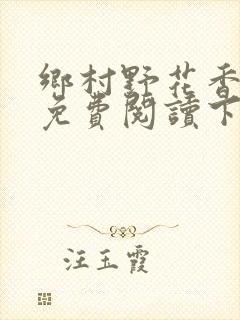 鄉村野花香
免費閱讀下
汪玉霞